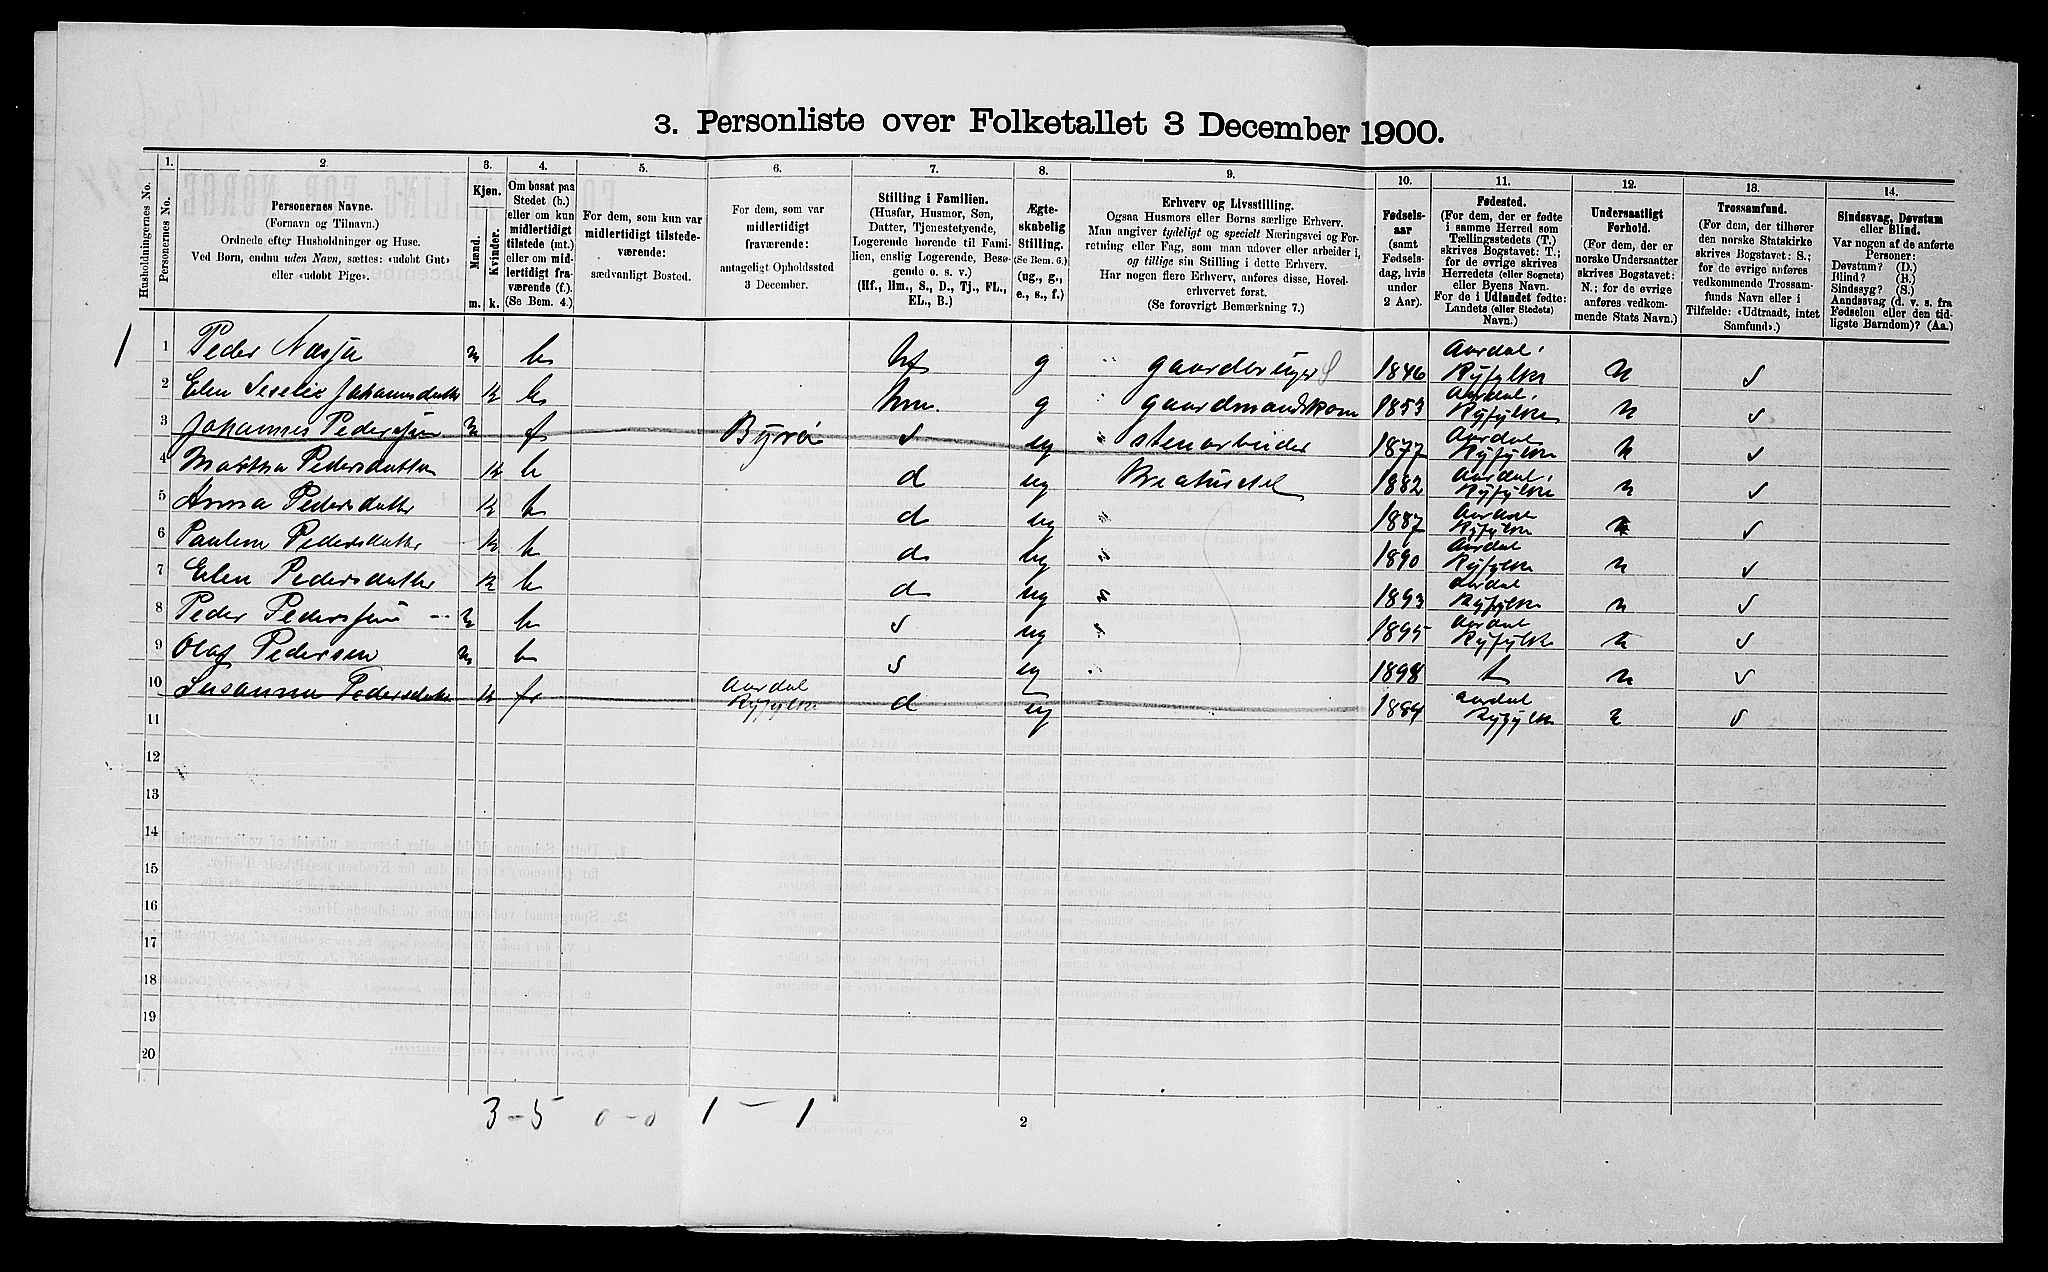 3. Personliste over Folketallet 3 December 1900.
1. 2 3. 4. 5. 6. 7. 8. 9. 10. 11. 12. 13. 14.
Husholdningernes No.
Personernes No.
Personernes Navne.
(Fornavn og Tilnavn.)
Ordnede efter Husholdninger og Huse.
Ved Børn, endnu uden Navn, sættes: «udøbt Gut»
eller «udøbt Pige».
Kjøn.
Mænd.
Kvinder.
m. k.
Om bosat paa
Stedet (b.)
eller om kun
midlertidigt
tilstede (mt.)
eller om mid-
lertidigt fra-
værende (f.).
(Se Bem. 4.)
For dem, som kun var
midlertidigt tilstede-
værende:
sædvanligt Bosted.
For dem, som var
midlertidigt
fraværende:
antageligt Opholdssted
3 December.
Stilling i Familien.
(Husfar, Husmor, Søn,
Datter, Tjenestetyende,
Logerende hørende til Fami-
lien, enslig Logerende, Besø-
gende o. s. v.)
(Hf., Hm., S., D., Tj., FL.,
EL., B.)
Ægte-
skabelig
Stilling.
(Se Bem. 6.)
(ug., g.,
e., s., f.)
Erhverv og Livsstilling.
Ogsaa Husmors eller Børns særlige Erhverv.
Man angiver tydeligt og specielt Næringsvei og For-
retning eller Fag, som man udover eller arbeider i,
og tillige sin Stilling i dette Erhverv.
Har nogen flere Erhverv, anføres disse, Hoved-
erhvervet først.
(Se forøvrigt Bemærkning 7.)
Fødsels-
aar
(samt
Fødsels-
dag, hvis
under
2 Aar).
Fødested.
(For dem, der er fødte
i samme Herred som
Tællingsstedets (T.)
skrives Bogstavet: T.;
for de øvrige skrives
Herredets (eller Sognets)
eller Byens Navn.
For de i Udlandet fødte:
Landets (eller Stedets)
Navn.)
Undersaatligt
Forhold.
(For dem, der er
norske Undersaatter
skrives Bogstavet:
N.; for de øvrige
anføres vedkom-
mende Stats Navn.)
Trossamfund.
(For dem, der tilhører
den norske Statskirke
skrives Bogstavet: S.;
for de øvrige anføres
vedkommende Trossam-
funds Navn eller i
Tilfælde: «Udtraadt, intet
Samfund».)
Sindssvag, Døvstum
eller Blind.
Var nogen af de anførte
Personer:
Døvstum? (D.)
Blind? (B.)
Sindssyg? (S.)
Aandssvag (d. v. s. fra
Fødselen eller den tid-
ligste Barndom)? (Aa.)
1 1 Peder Nesja m b hf g " gaardbruger S 1846 Aardal, Ryfylke n s
2 Elen Seselie Johannesdatter k b hm. g " gaardmandskone 1853 Aardal, Ryfylke n s
3 Johannes Pedersen m f Byrø s ug " stenarbeider 1877 Aardal Ryfylke n s
4 Martha Pedersdatter k b d ug Kreaturstel 1882 Aardal, Ryfylke n s
5 Anna Pedersdatter k b d ug " 1887 Aardal Ryfylke n s
6 Pauline Pedersdatter k b d ug " 1890 Aardal Ryfylke n s
7 Elen Pedersdatter k b d ug " 1893 Aardal Ryfylke n s
8 Peder Pedersen m b s ug " 1895 Aardal Ryfylke n s
9 Olaf Pedersen m b s ug " 1898 t n s
10 Susanna Pedersdatter k f Aardal Ryfylke d ug 1884 Aardal Ryfylke n s
11
12
13
14
15
16
17
18
19
20
3 - 5 0 - 0 1 - 1
2